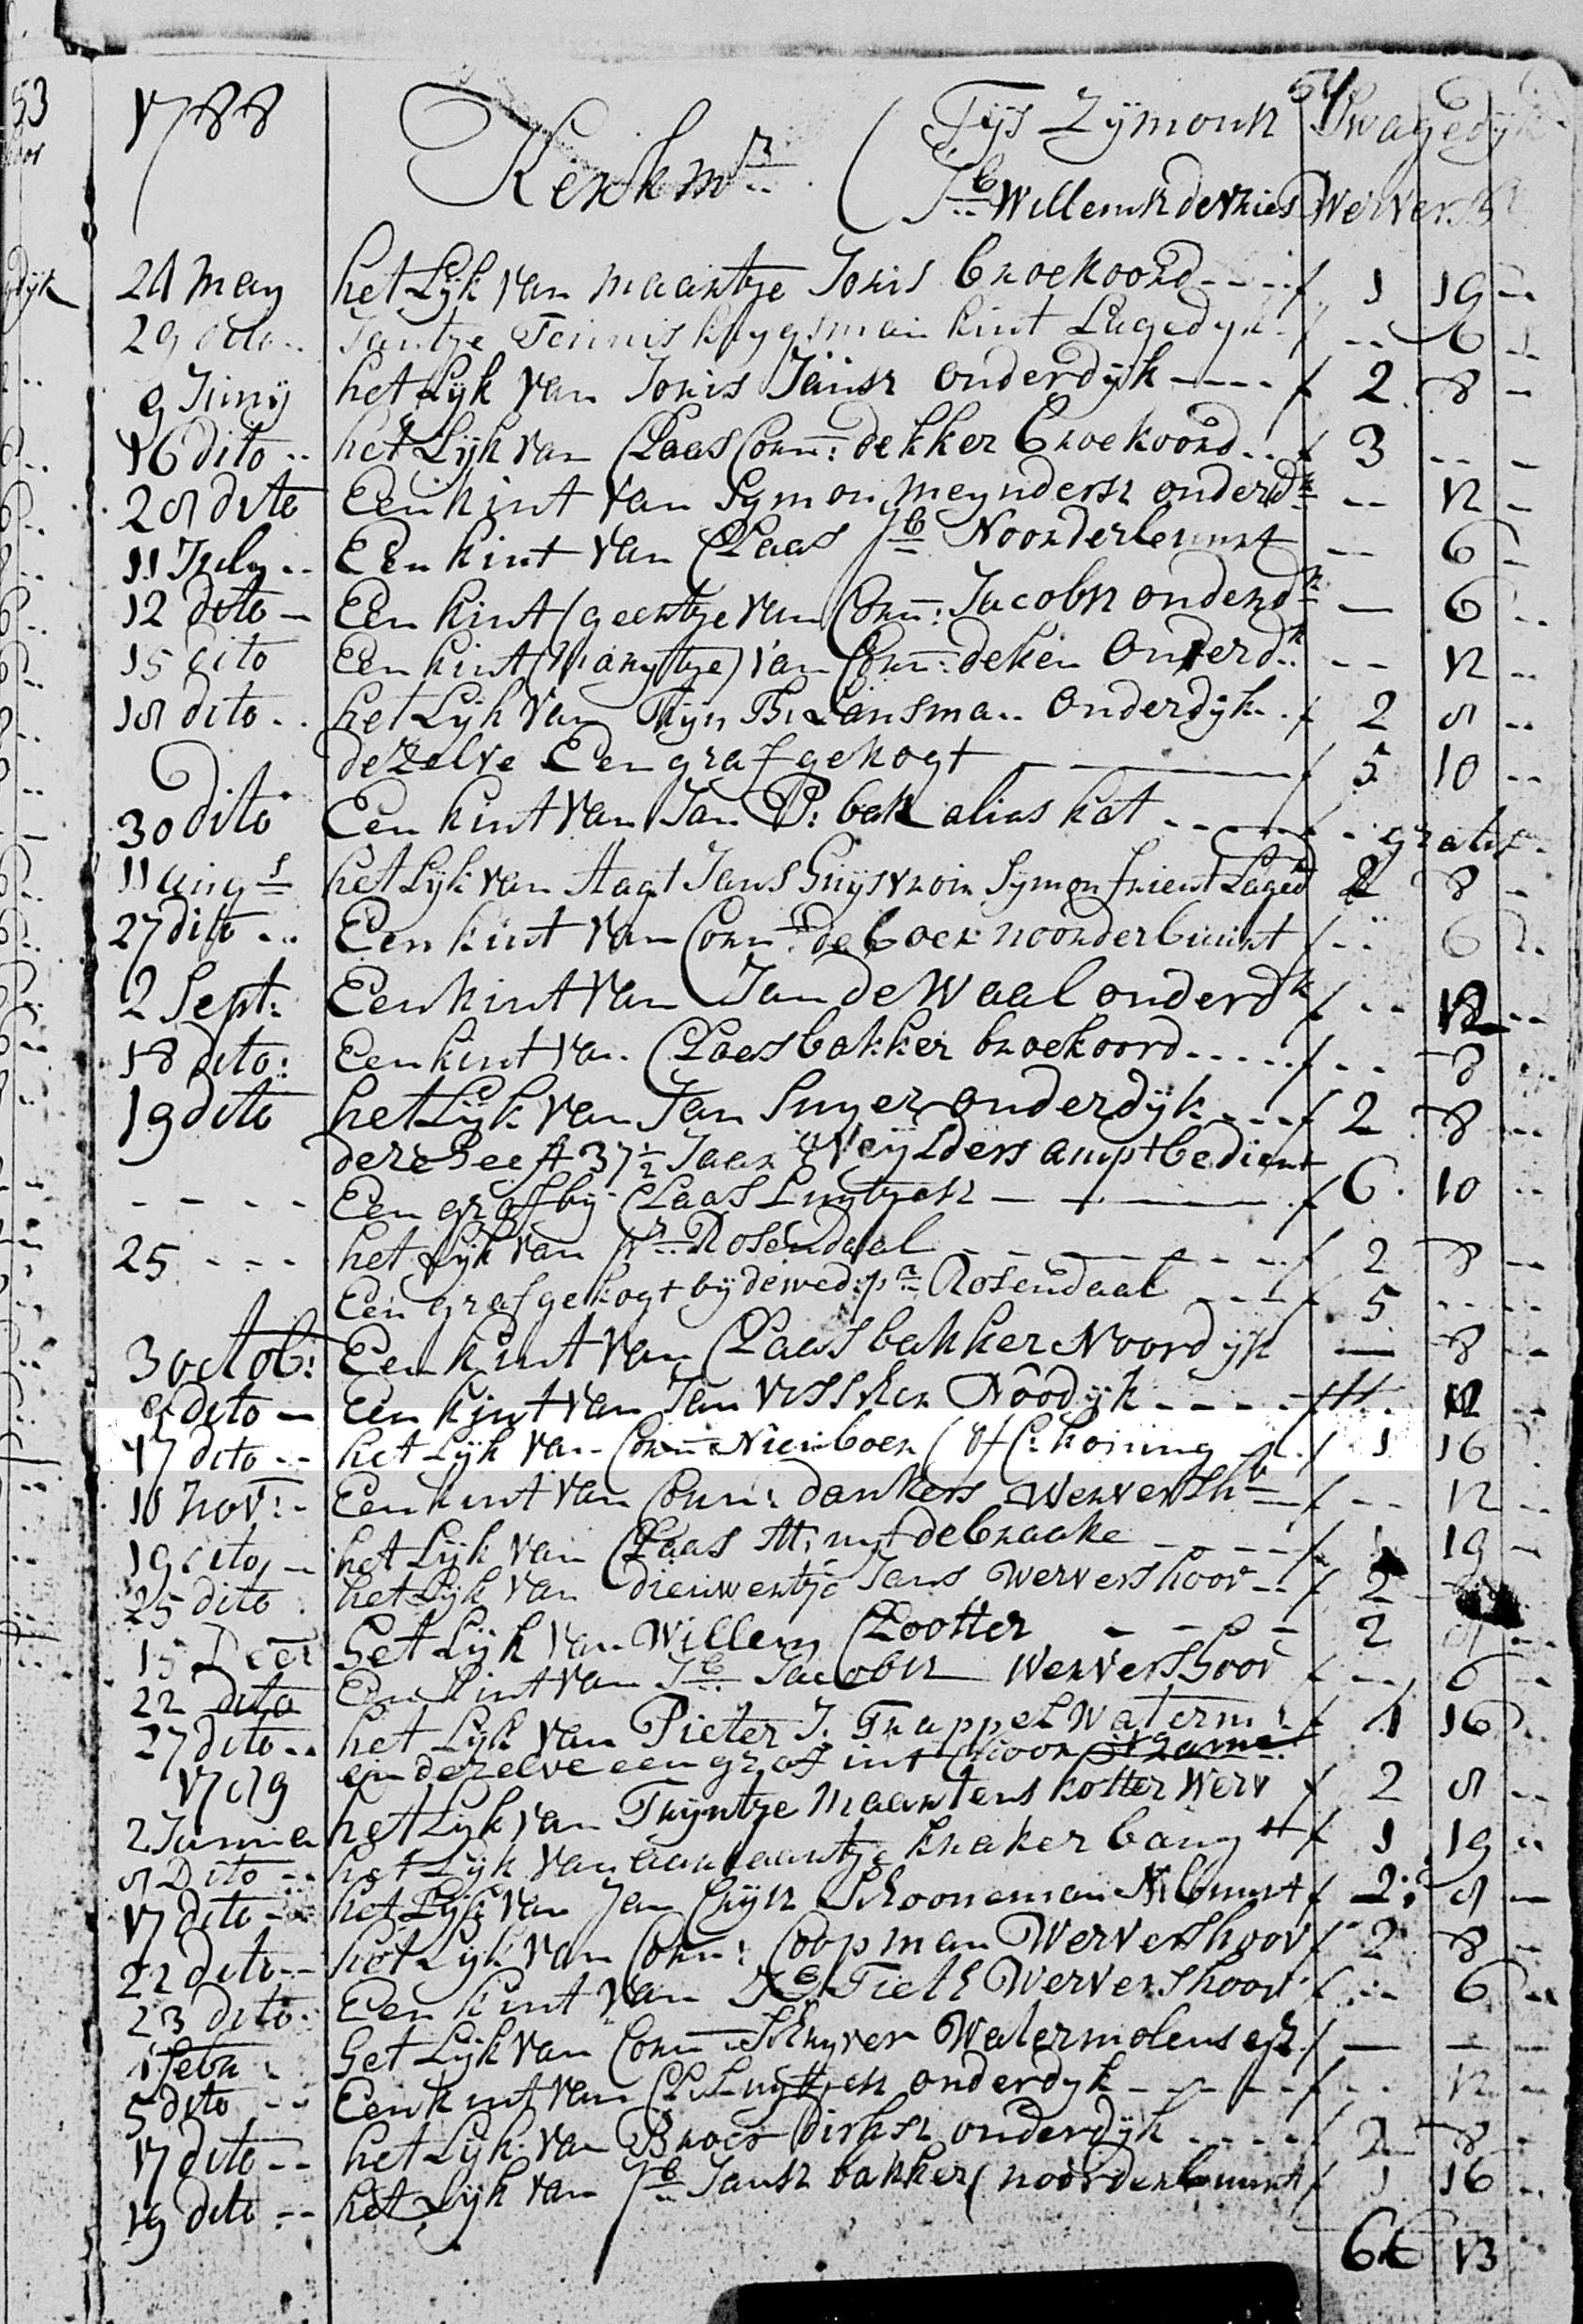 53
54
1788 Kerkmrs (Tijs Zijmonsz Swagedijk
Jb Willemsz de Vries Werversh
24 May het Lijk van Maartje Joris broekoord ---- f 1 19 --
29 dito -- Jantje Teunis kint Lagedijk - f -- 6 --
9 Junij het Lijk van Joris Jansz onderdijk ---- f 2 8 -
16 dito -- het Lijk van Claas Corn: dekker broekoord -- f 3 -- -
28 dito Een kint van Symon Meyndersz onderdk -- 12 -
11 July -- Een kint van Claas Jb Noorderbuurt -- 6 -
12 dito - Een kint (geertje van Corn: Jacobsz onderdk - 6 --
15 dito Een kint (Marijtje) van Corn: deken Onderdk -- 12 --
18 dito -- het Lijk van Thijs Lansman Onderdijk - f 2 8 --
dezelve Een graf gekogt f 5 10 --
30 dito Een kint van Jan P: bak alias kat ---- f - gratis -
11 augst het Lijk van Aagt Jans Guys vrou Symon frient Laged 2 8 -
27 dito -- Een kint van Corn: de boer noorderbuurt f -- 6 --
2 Sept: Een kint van Jan de Waal onderdk f -- 12 --
18 dito: Een kint van Claas bakker broekoord ----- f -- 8 --
19 dito het Lijk van Jan Suyer onderdijk --- f 2 8 --
deze heeft 37½ Jaar ampt bedient
- - - - Een graf bij Claas Luytjesz - f 6 10 --
25 --- het Lijk van Pr Rosendaal ---- f 2 8 --
Een graf gekogt bij de wed: pr Rosendaal --- f 5 -- --
3 octob: Een kint van Claas bakker Noordijk - 8 --
8 dito - Een kint van Jan Visscher Noodijk ---- f 12 --
17 dito -- het Lijk van Corn: Nieuboer (of C: koning -- f 1 16
10 nov: - Een kint van Corn: dankers Wervershv - f -- 12 --
19 dito - het Lijk van Claas uyt de braake ---- f 1 19 -
25 dito het Lijk van dieuwertje Jans Wervershoov -- f 2
15 Decr het Lijk van Willem Clooster - - - - 2 8 --
22 dito Een kint van Jb Jacobsz Wervershoov f -- 6 --
27 dito -- het Lijk van Pieter J. Trappel Waterm f 4 16 --
en dezelve een graf int Choor
1789
2 Januar het Lijk van Trijntje Maartens kotter Werv f 2 8 --
8 Dito -- het Lijk van kraker bangt f 1 19 --
17 dito -- het Lijk van Jan Schooneman Nbuurt f 2 8 -
22 dito -- het Lijk van Corn: Coopman Wervershoov f 2 8 -
23 dito - Een kint van Tiets Wervershoov f -- 6 --
1 febr: het Lijk van Corn: Schuyver Watermolens f - - -
5 dito -- Een kint van Cl: Luytjesz onderdyk ----- f -- 12 -
17 dito -- het Lijk van Broer dirksz onderdijk ---- f 2 8 -
19 dito -- het Lijk van Jb Jansz bakker (noorderbuurt f 1 16 --
13